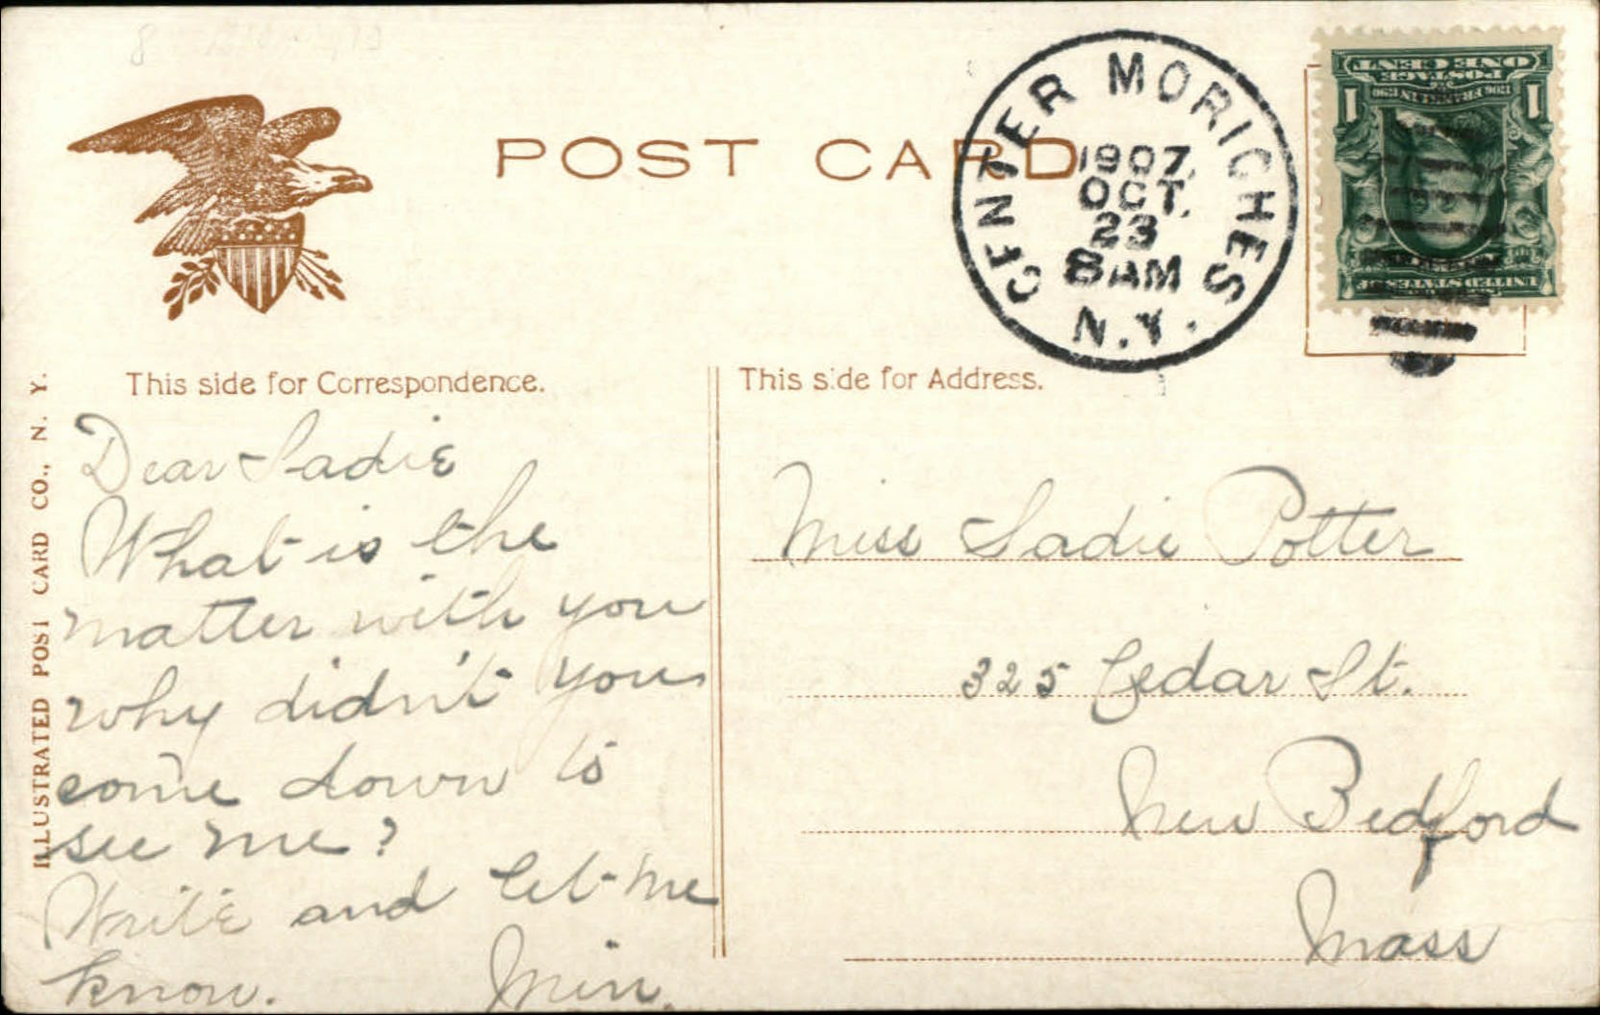 POST CARD
CENTER MORICHES
1907.
OCT.
23
8 AM
N.Y.
ONE CENT
POSTAGE
1706 FRANKLIN 1790
1 1
This side for Correspondence.
This side for Address.
ILLUSTRATED POST CARD CO., N. Y.
Dear Sadie
What is the
matter with you
why didn't you
come down to
see me?
Write and let me
know. Min.
Miss Sadie Potter
325 Cedar St.
New Bedford
Mass